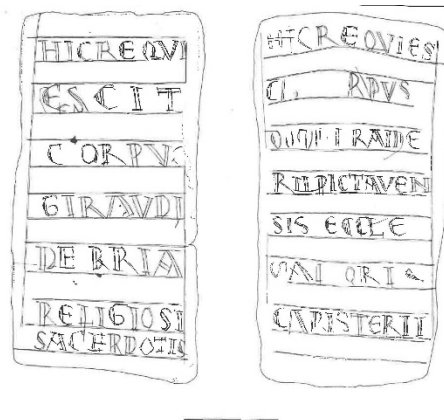 HICREQVI
ESCIT
CORPVS
GIRAVDI
DE BRIA
RELIGIOSI
SACERDOTIS
HICREQVIES
RPVS
PICTAVEN
SIS ECCLE
CAPISTERII